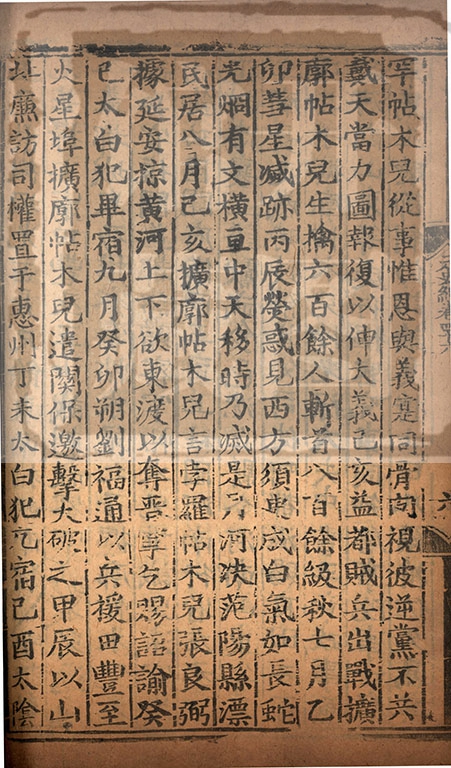 罕帖木兒從事惟恩與義寔同骨肉視彼逆黨不共
戴天當力圖報復以伸大義己亥益都賊兵出戰擴
廓帖木兒生擒六百餘人斬首八百餘級秋七月乙
卯彗星滅跡丙辰熒惑見西方須臾成白氣如長蛇
光烱有文橫亘中天移時乃滅是月河决范陽縣漂
民居八月己亥擴廓帖木兒言孛羅帖木兒張良弼
據延安掠黃河上下欲東渡以奪晉寧乞賜詔諭癸
巳太白犯畢宿九月癸卯朔劉福通以兵援田豐至
火星埠擴廓帖木兒遣關保邀擊大破之甲辰以山
北廉訪司權置于惠州丁未太白犯亢宿己酉太陰